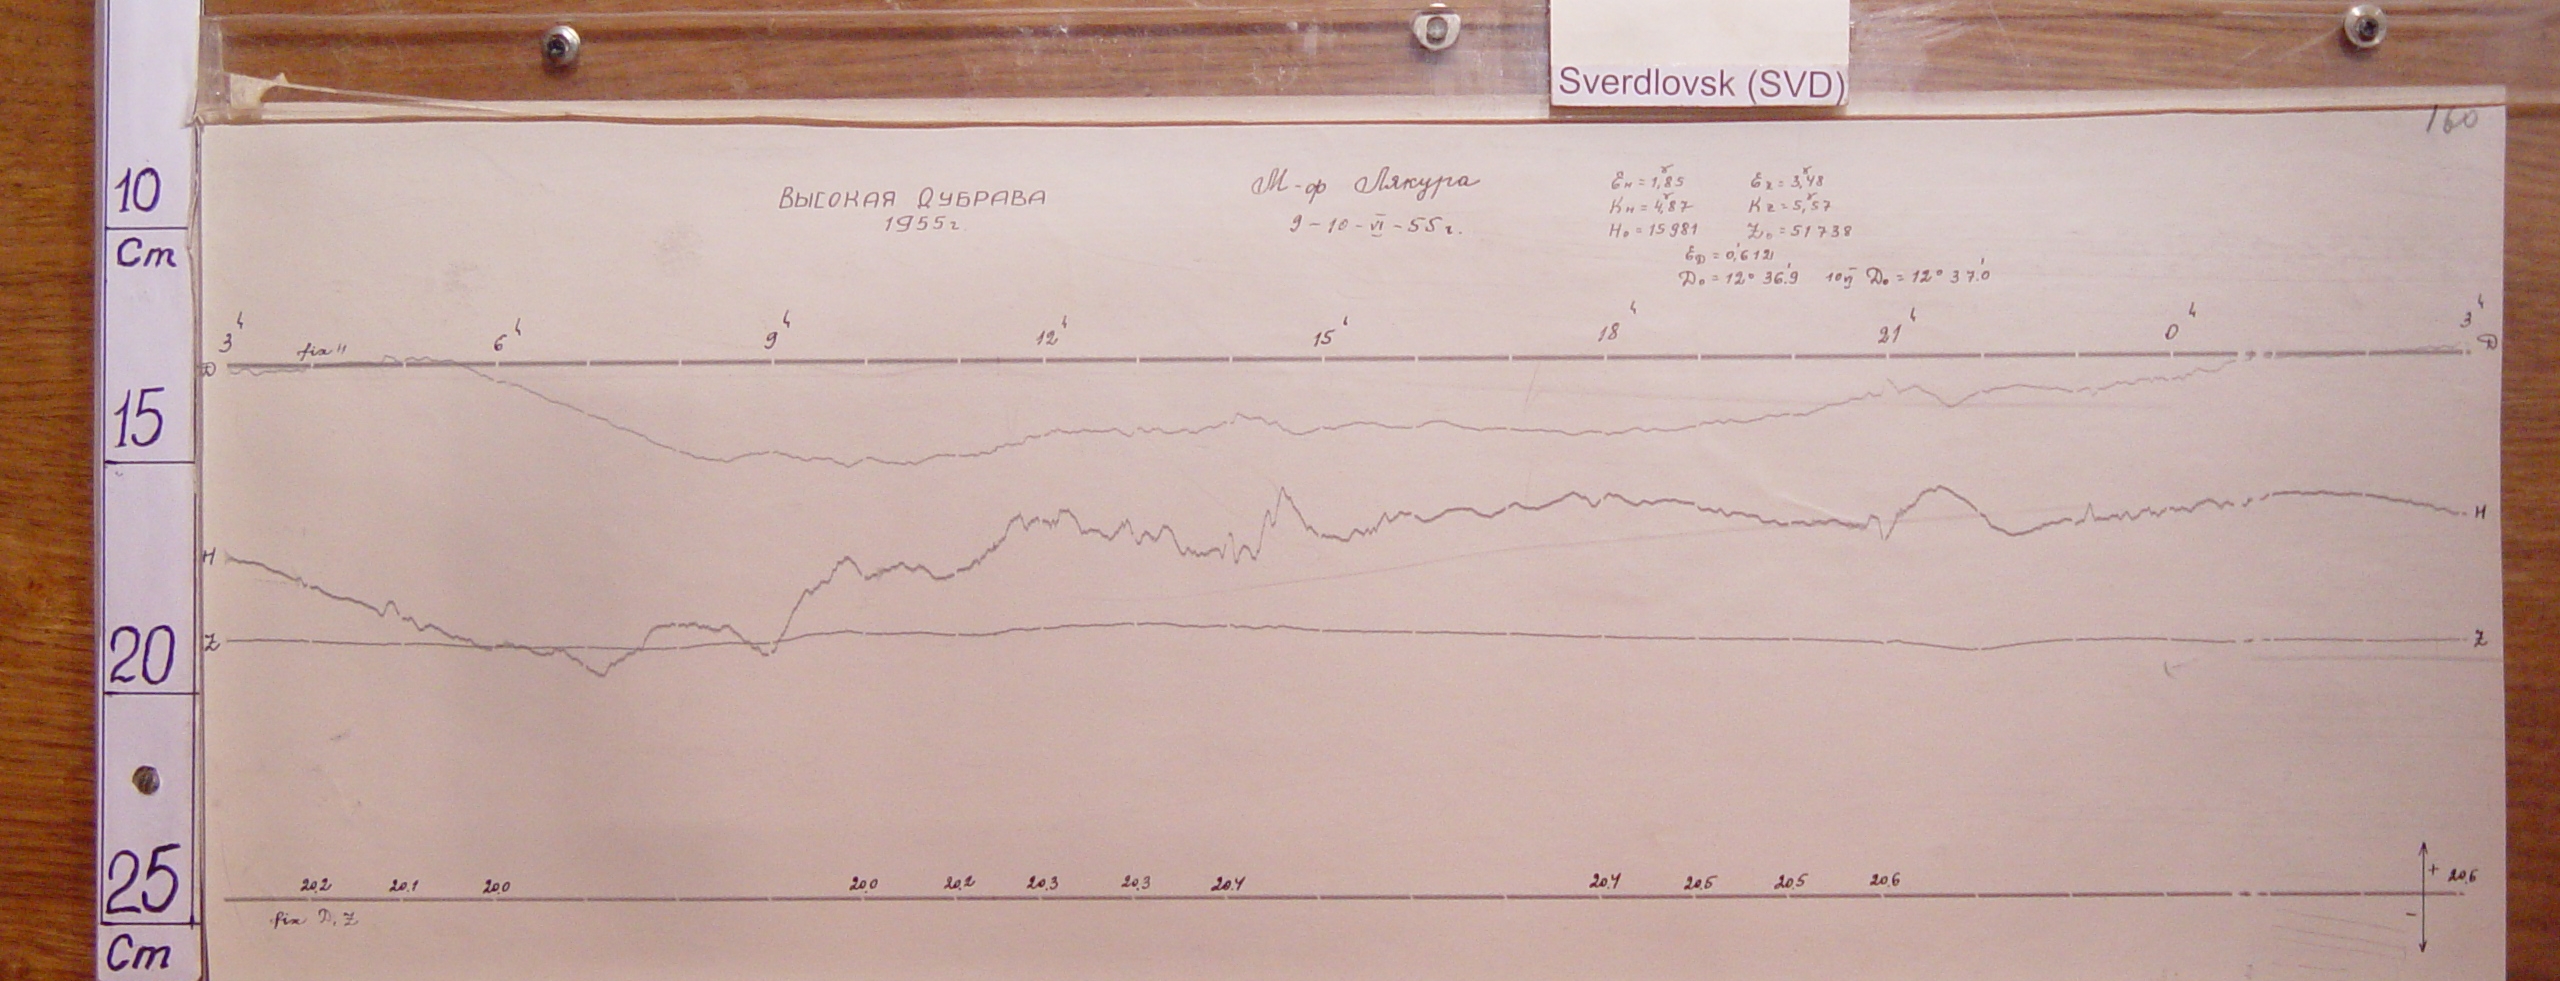 Sverdlovsk (SVD)
160
10
Cm
15
20
25
Cm
ВЫСОКАЯ ДУБРАВА
1955г.
М-ф Лякура
9-10-VI-55г.
Ɛн = 1,85γ Ɛz = 3,48γ
Kн = 4,87γ Kz = 5,57γ
H₀ = 15981 Z₀ = 51738
ƐD = 0,612'
D₀ = 12° 36.9' D₀ = 12° 37.0'
3ч 6ч 9ч 12ч 15ч 18ч 21ч 0ч 3ч
fix H
D D
H H
Z Z
20.2 20.1 20.0 20.0 20.2 20.3 20.3 20.4 20.4 20.5 20.5 20.6 + 20.6
fix D, Z -